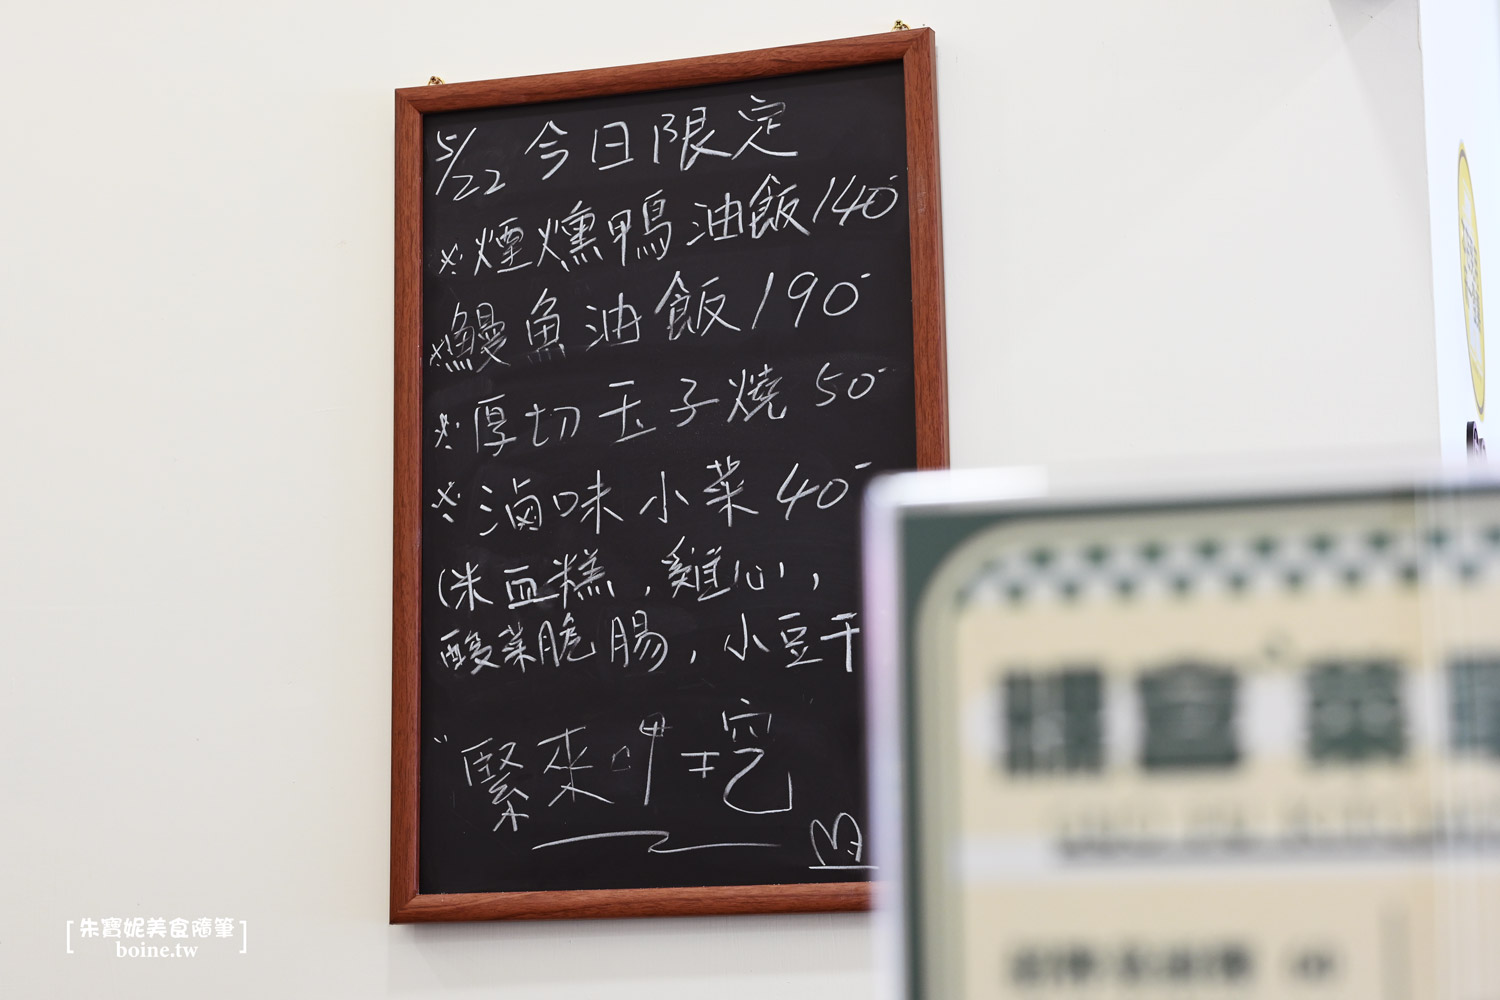 5/22 今日限定
※煙燻鴨油飯140-
※鰻魚油飯190-
※厚切玉子燒 50-
※滷味小菜40-
(米血糕,雞心,
酸菜脆腸,小豆干
緊來呷
[朱寶妮美食隨筆]
boine.tw